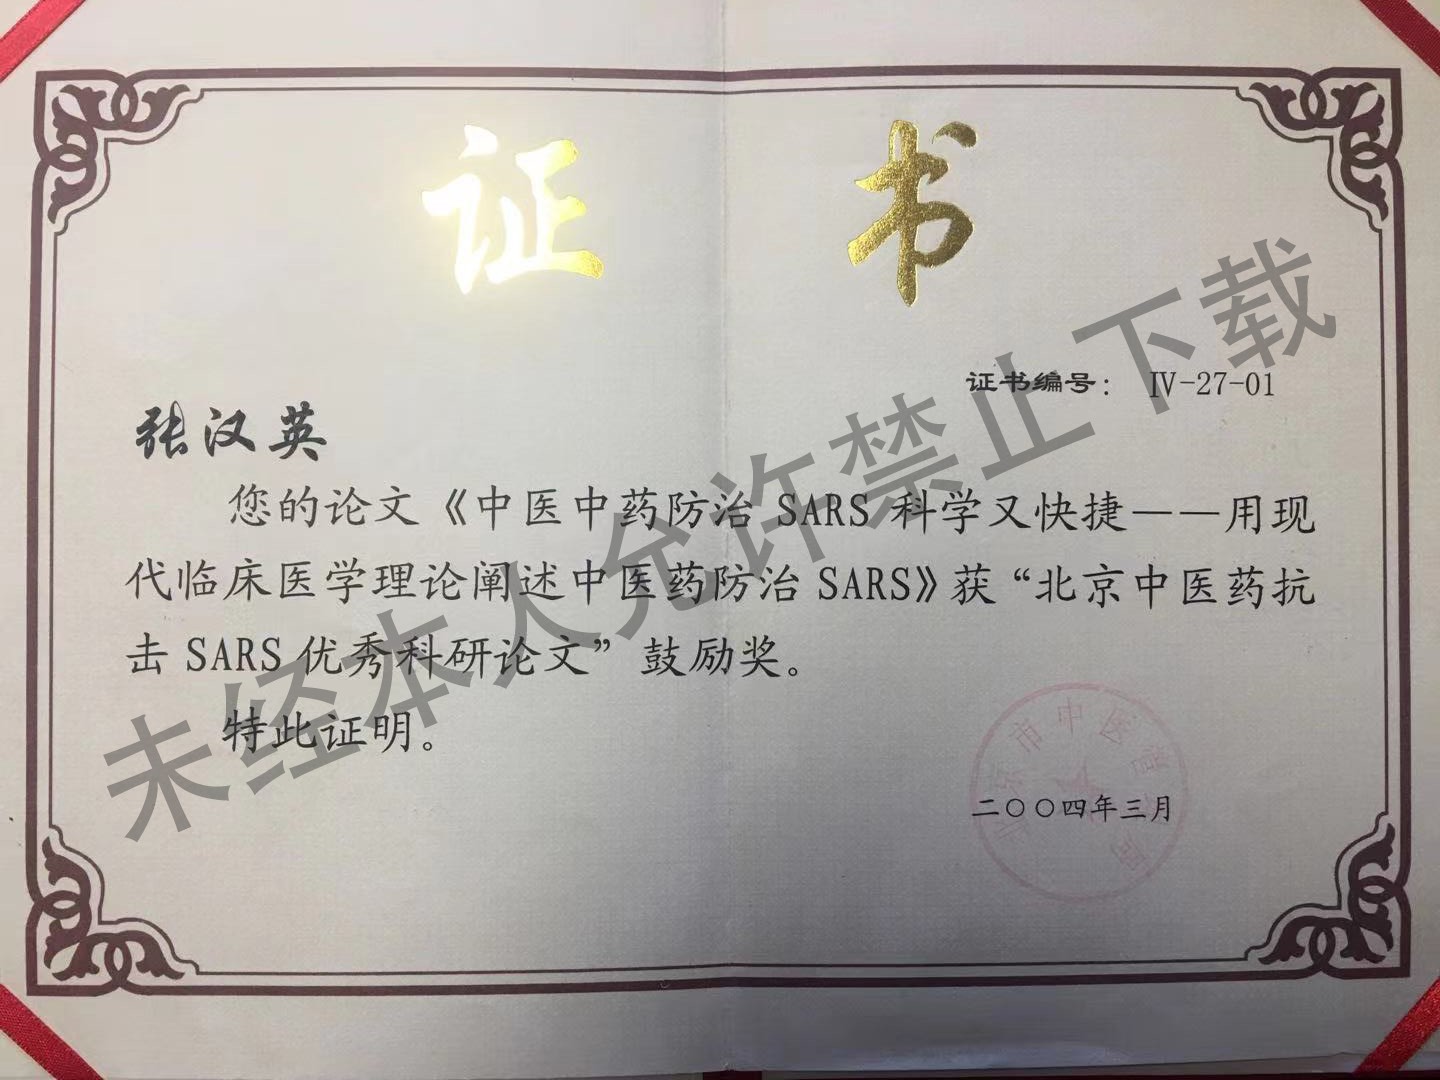 证书
证书编号： Ⅳ-27-01
张汉英
您的论文《中医中药防治 SARS 科学又快捷——用现
代临床医学理论阐述中医药防治 SARS》获“北京中医药抗
击 SARS 优秀科研论文”鼓励奖。
特此证明。
北京市中医管 局
二〇〇四年三月
未经本人允许禁止下载